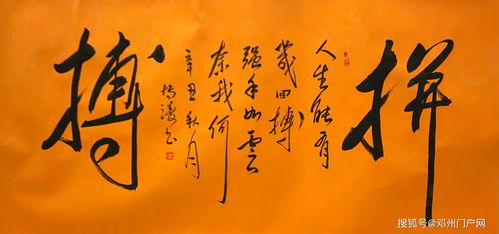 拼
人生能有
几回搏
强手如雲
奈我何
辛丑秋月
博涛书
搏
搜狐号@邓州门户网